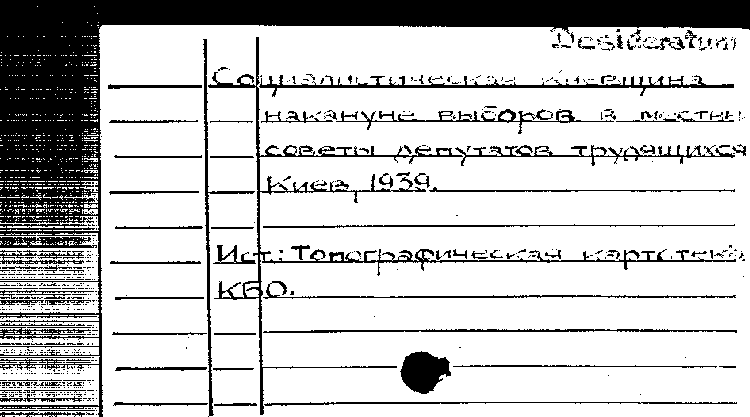 Desideratum
Социалистическая Киевщина
накануне выборов в местны
советы депутатов трудящихся
Киев, 1939.
Ист.: Топографическая картотека
КБО.